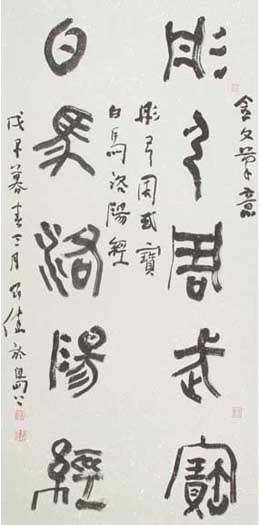 金文筆意
彤弓周武寶
彤弓周武寶
白馬洛陽經
白馬洛陽經
戊暮春三月